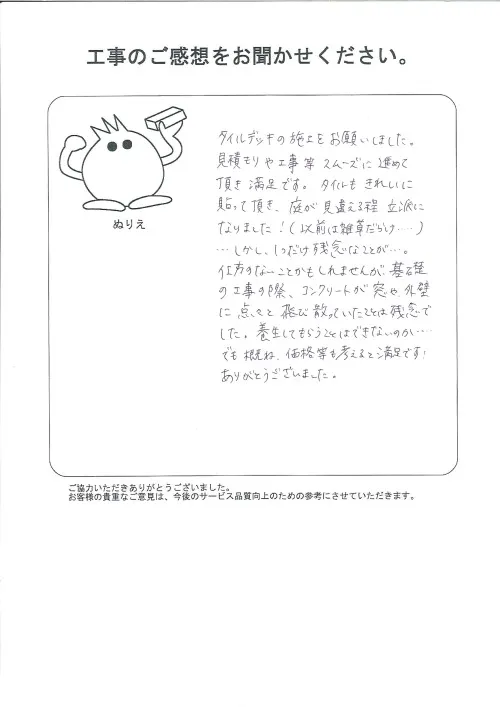 工事のご感想をお聞かせください。
ぬりえ
タイルデッキの施工をお願いしました。
見積もりや工事等スムーズに進めて
頂き満足です。タイルもきれいに
貼って頂き、庭が見違える程立派に
なりました!(以前は雑草だらけ‥‥)
…しかし、1つだけ残念なことが…。
仕方のないことかもしれませんが、基礎
の工事の際、コンクリートが窓や外壁
に点々と飛び散っていたことは残念で
した。養生してもらうことはできないのか‥‥
でも概ね、価格等も考えると満足です!
ありがとうございました。
ご協力いただきありがとうございました。
お客様の貴重なご意見は、今後のサービス品質向上のための参考にさせていただきます。